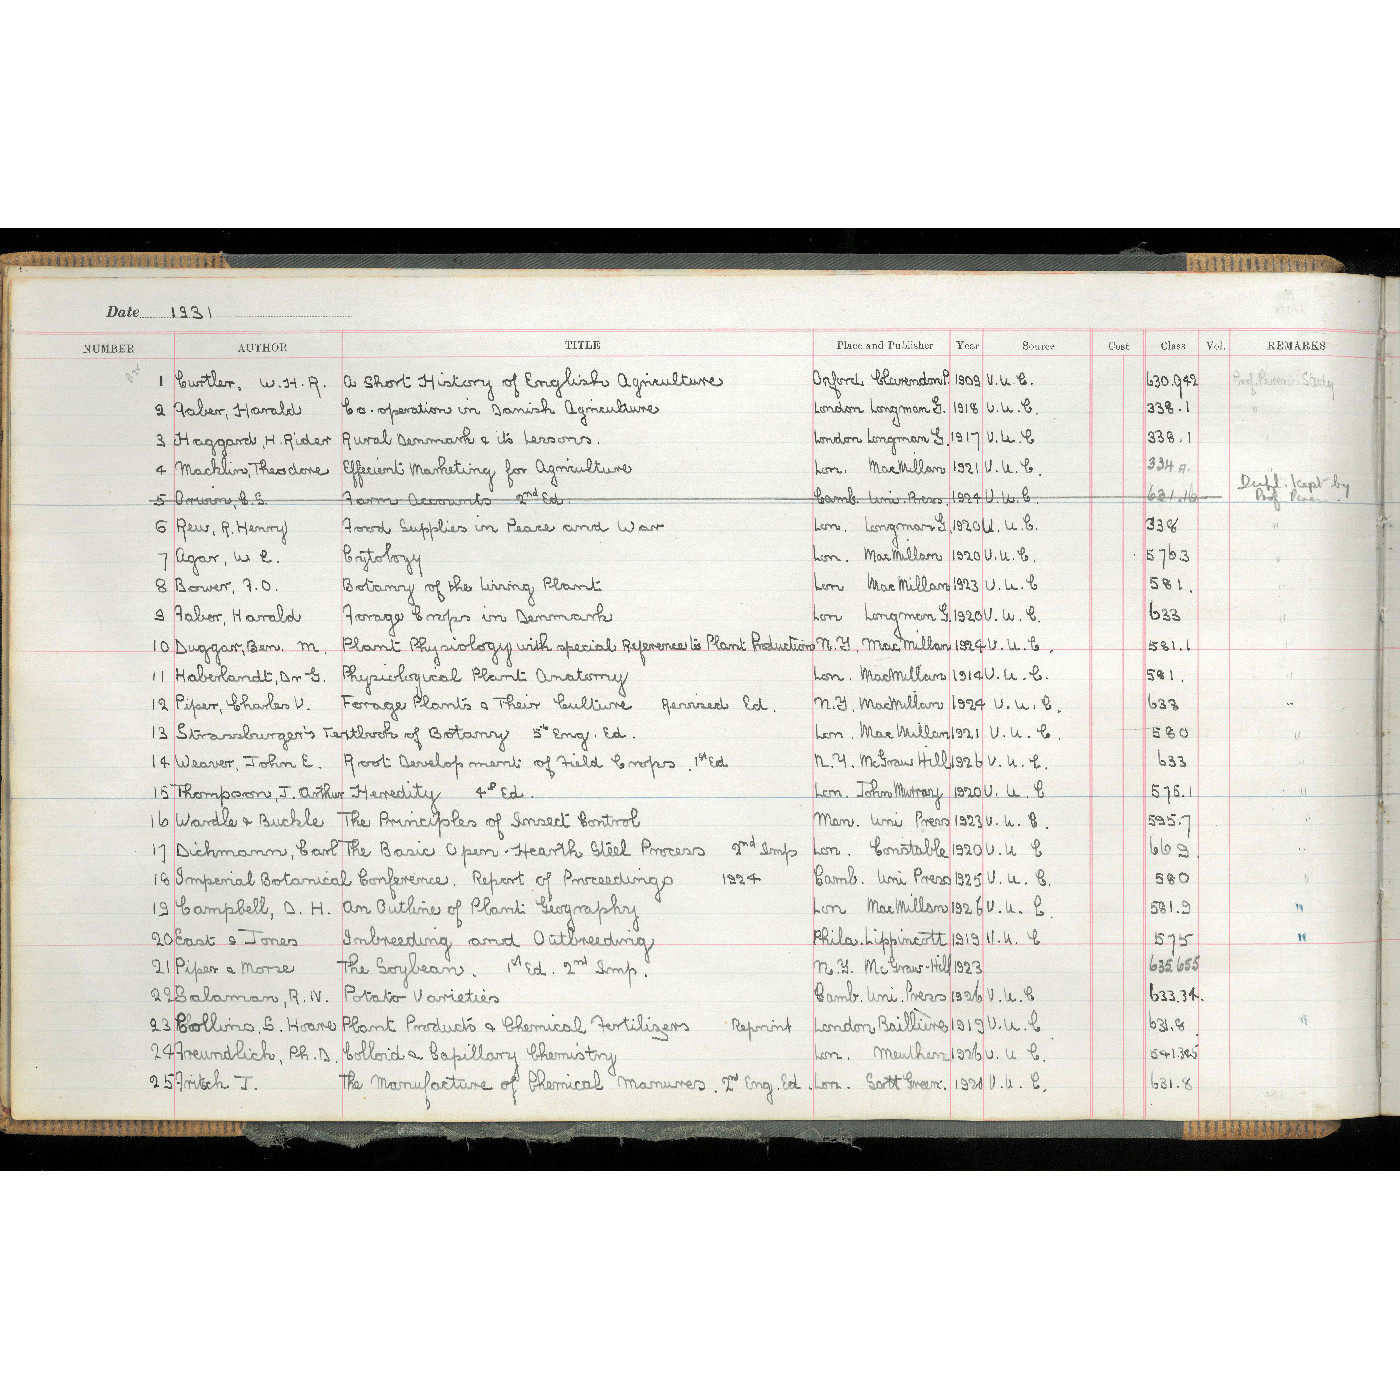 Date 1931
NUMBER AUTHOR TITLE Place and Publisher Year Source Cost Class Vol. REMARKS
1 Curtler, W.H.R. A Short History of English Agriculture Oxford Clarendon P. 1909 V.U.C. 630.942 Study
2 Faber, Harald Co-operation in Danish Agriculture London Longman G. 1918 V.U.C. 338.1 "
3 Haggard, H. Rider Rural Denmark & its Lessons. London Longman G. 1917 V.U.C 338.1
4 Macklin, Theodore Effecient Marketing for Agriculture Lon. MacMillan 1921 V.U.C. 334 A.
5 Orwin, C.S. Farm Accounts 2nd Ed. Camb. Uni. Press 1924 V.U.C. 631.16 Kept by Prof
6 Rew, R. Henry Food Supplies in Peace and War Lon. Longman G. 1920 V.U.C. 338 "
7 Agar, W E. Cytology Lon. MacMillan 1920 V.U.C. 576.3 "
8 Bower, F.O. Botany of the Living Plant Lon MacMillan 1923 V.U.C 581. "
9 Faber, Harald Forage Crops in Denmark Lon Longman G. 1920 V.U.C. 633 "
10 Duggar, Ben. M. Plant Physiology with special Reference to Plant Production N.Y. MacMillan 1924 V.U.C. 581.1 "
11 Haberlandt, Dr G. Physiological Plant Anatomy Lon. MacMillan 1914 V.U.C. 581. "
12 Piper, Charles V. Forage Plants & Their Culture Revised Ed. N.Y. MacMillan 1924 V.U.C. 633 "
13 Strassburger's Textbook of Botany 5th Eng. Ed. Lon. MacMillan 1921 V.U.C. 580 "
14 Weaver, John E. Root Development of Field Crops. 1st Ed N.Y. McGraw Hill 1926 V.U.C. 633 "
15 Thompson, J. Arthur Heredity 4th Ed. Lon. John Murray 1920 V.U.C 575.1 "
16 Wardle & Buckle The Principles of Insect Control Man. Uni Press 1923 V.U.C. 595.7 "
17 Dichmann, Carl The Basic Open-Hearth Steel Process 2nd Imp Lon. Constable 1920 V.U.C 669 "
18 Imperial Botanical Conference. Report of Proceedings 1924 Camb. Uni Press 1925 V.U.C. 580 "
19 Campbell, D. H. An Outline of Plant Geography Lon MacMillan 1926 V.U.C. 581.9 "
20 East & Jones Inbreeding and Outbreeding Phila. Lippincott 1919 V.U.C 575 "
21 Piper & Morse The Soybean. 1st Ed. 2nd Imp. N.Y. McGraw-Hill 1923 635.655
22 Salaman, R.N. Potato Varieties Camb. Uni. Press 1926 V.U.C 633.34.
23 Collins, S. Hoare Plant Products & Chemical Fertilizers Reprint London Baillière 1919 V.U.C 631.8 "
24 Freundlich, Ph. D. Colloid & Capillary Chemistry Lon. Meuthen 1926 V.U.C. 541.345
25 Fritsch J. The Manufacture of Chemical Manures. 2nd Eng. Ed. Lon. Scott Green. 1920 V.U.C. 631.8